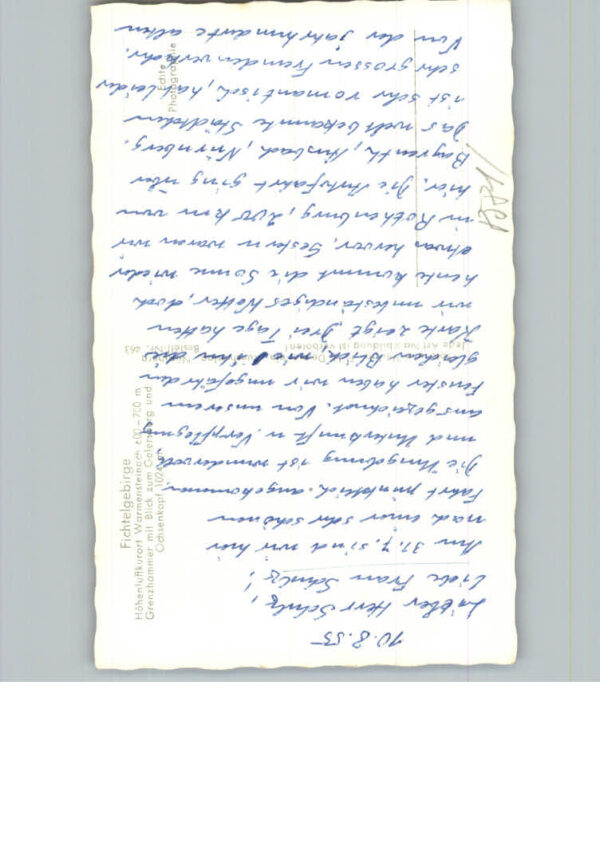 10.8.55
Lieber Herr Schulz,
Liebe Frau Schulz!
Am 31.7. sind wir hier
nach einer sehr schönen
Fahrt pünktlich angekommen.
Die Umgebung ist wundervoll
und Unterkunft u. Verpflegung
ausgezeichnet. Von unserem
Fenster haben wir ungefähr den
gleichen Blick wie ihn die
Karte zeigt. Drei Tage hatten
wir unbeständiges Wetter, doch
heute kommt die Sonne wieder
etwas hervor. Gestern waren wir
in Rothenburg, 200 km von
hier. Die Autofahrt ging über
Bayreuth, Ansbach, Nürnberg.
Das weltbekannte Städtchen
ist sehr romantisch, hat leider
sehr grossen Fremdenverkehr.
Von der Jahrhunderte alten
Fichtelgebirge
Höhenluftkurort Warmensteinach 600–700 m
Grenzhammer mit Blick zum Geiersberg und
Ochsenkopf 1024 m
Bestell-Nr. 463
Jede Art Nachbildung ist verboten!
Photographie